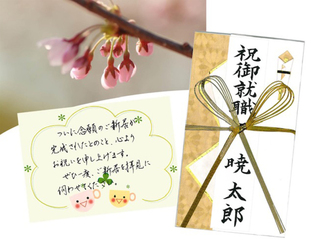 祝御就職
暁太郎
ついに念願のご新居が
完成されたとのこと、心より
お祝いを申し上げます。
ぜひ一度、ご新居を拝見に
伺わせてください。